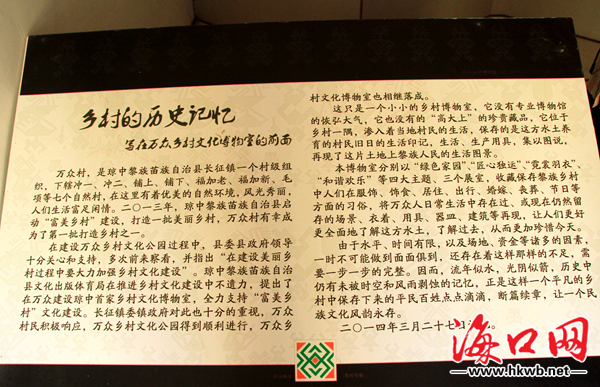 乡村的历史记忆
写在万众乡村文化博物室的前面
万众村，是琼中黎族苗族自治县长征镇一个村级组
织，下辖冲一、冲二、铺上、铺下、福加老、福加新、毛
项等七个自然村，在这里有着优美的自然环境，风光秀丽，
人们生活富足闲情。二〇一三年，琼中黎族苗族自治县启
动“富美乡村”建设，打造一批美丽乡村，万众村有幸成
为了第一批打造乡村之一。
在建设万众乡村文化公园过程中，县委县政府领导
十分关心和支持，多次前来察看，并指出“在建设美丽乡
村过程中要大力加强乡村文化建设”。琼中黎族苗族自治
县文化出版体育局在推进乡村文化建设中不遗力，提出了
在万众建设琼中首家乡村文化博物室，全力支持“富美乡
村”文化建设。长征镇委镇政府对此也十分的重视，万众
村民积极响应，万众乡村文化公园得到顺利进行，万众乡
村文化博物室也相继落成。
这只是一个小小的乡村博物室，它没有专业博物馆
的恢弘大气，它也没有的“高大上”的珍贵藏品，它位于
乡村一隅，渗入着当地村民的生活，保存的是这方水土养
育的村民旧日的生活印记，生活、生产用具，集以图说，
再现了这片土地上黎族人民的生活图景。
本博物室分别以“绿色家园”、“匠心独运”、“霓裳羽衣”、
“和谐欢乐”等四大主题、三个展室，收藏保存黎族乡村
中人们在服饰、饰食、居住、出行、婚嫁、丧葬、节日等
方面的习俗，将万众人日常生活中存在过、或现在仍然留
存的场景、衣着、用具、器皿、建筑等再现，让人们更好
更全面地了解这方水土，了解过去，从而更加珍惜今天。
由于水平、时间有限，以及场地、资金等诸多的因素，
一时不可能做到面面俱到，还存在着这样那样的不足，需
要一步一步的完整。因而，流年似水，光阴似箭，历史中
仍有未被时空和风雨剥蚀的记忆，正是这样一个平凡的乡
村中保存下来的平民百姓点点滴滴，断篇续章，让一个民
族文化风韵永存。
二〇一四年三月二十七日
海口网
www.hkwb.net